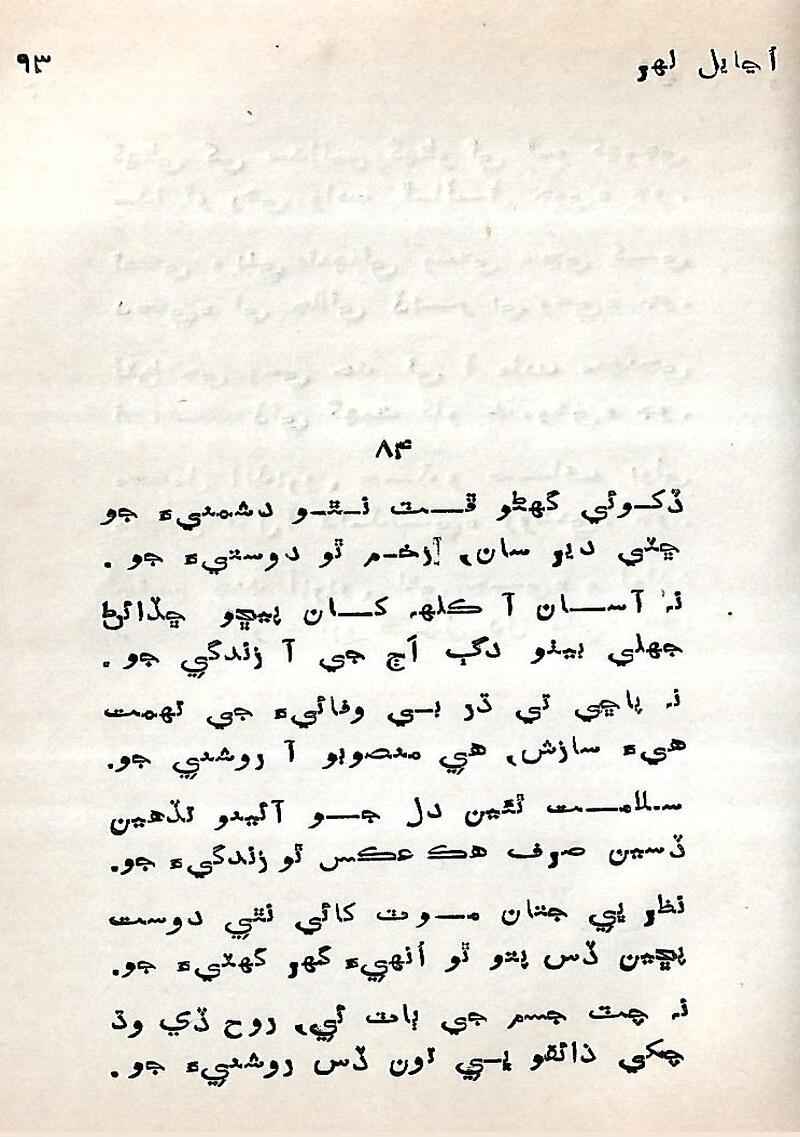 اڃايل لهر
٩٣
٨۴
ڏکوئي گهڻو ڦٽ نٿو دشمنيءَ جو
چٽي دير سان، زخم ٿو دوستيءَ جو.
نہ آسان آ ڪلهہ کان پيڇو ڇڏائڻ
جهلي بيٺو دڳ اَڄ جي آ زندگي جو.
نہ پاڇي تي ڌر بي وفائيءَ جي تهمت
هيءَ سازش، هي منصوبو آ روشني جو.
سلامت نٿين دل جو آئينو تڏهين
ڏسين صرف هڪ عڪس ٿو زندگيءَ جو.
نظر پي جتان موت کائي نٿي دوست
پڇين ڏس پتو ٿو اُنهيءَ گهر گهٽيءَ جو.
نہ چٽ جسم جي ٻاٽ ئي، روح ڏي وڌ
چکي ذائقو پي تون ڏس روشنيءَ جو.